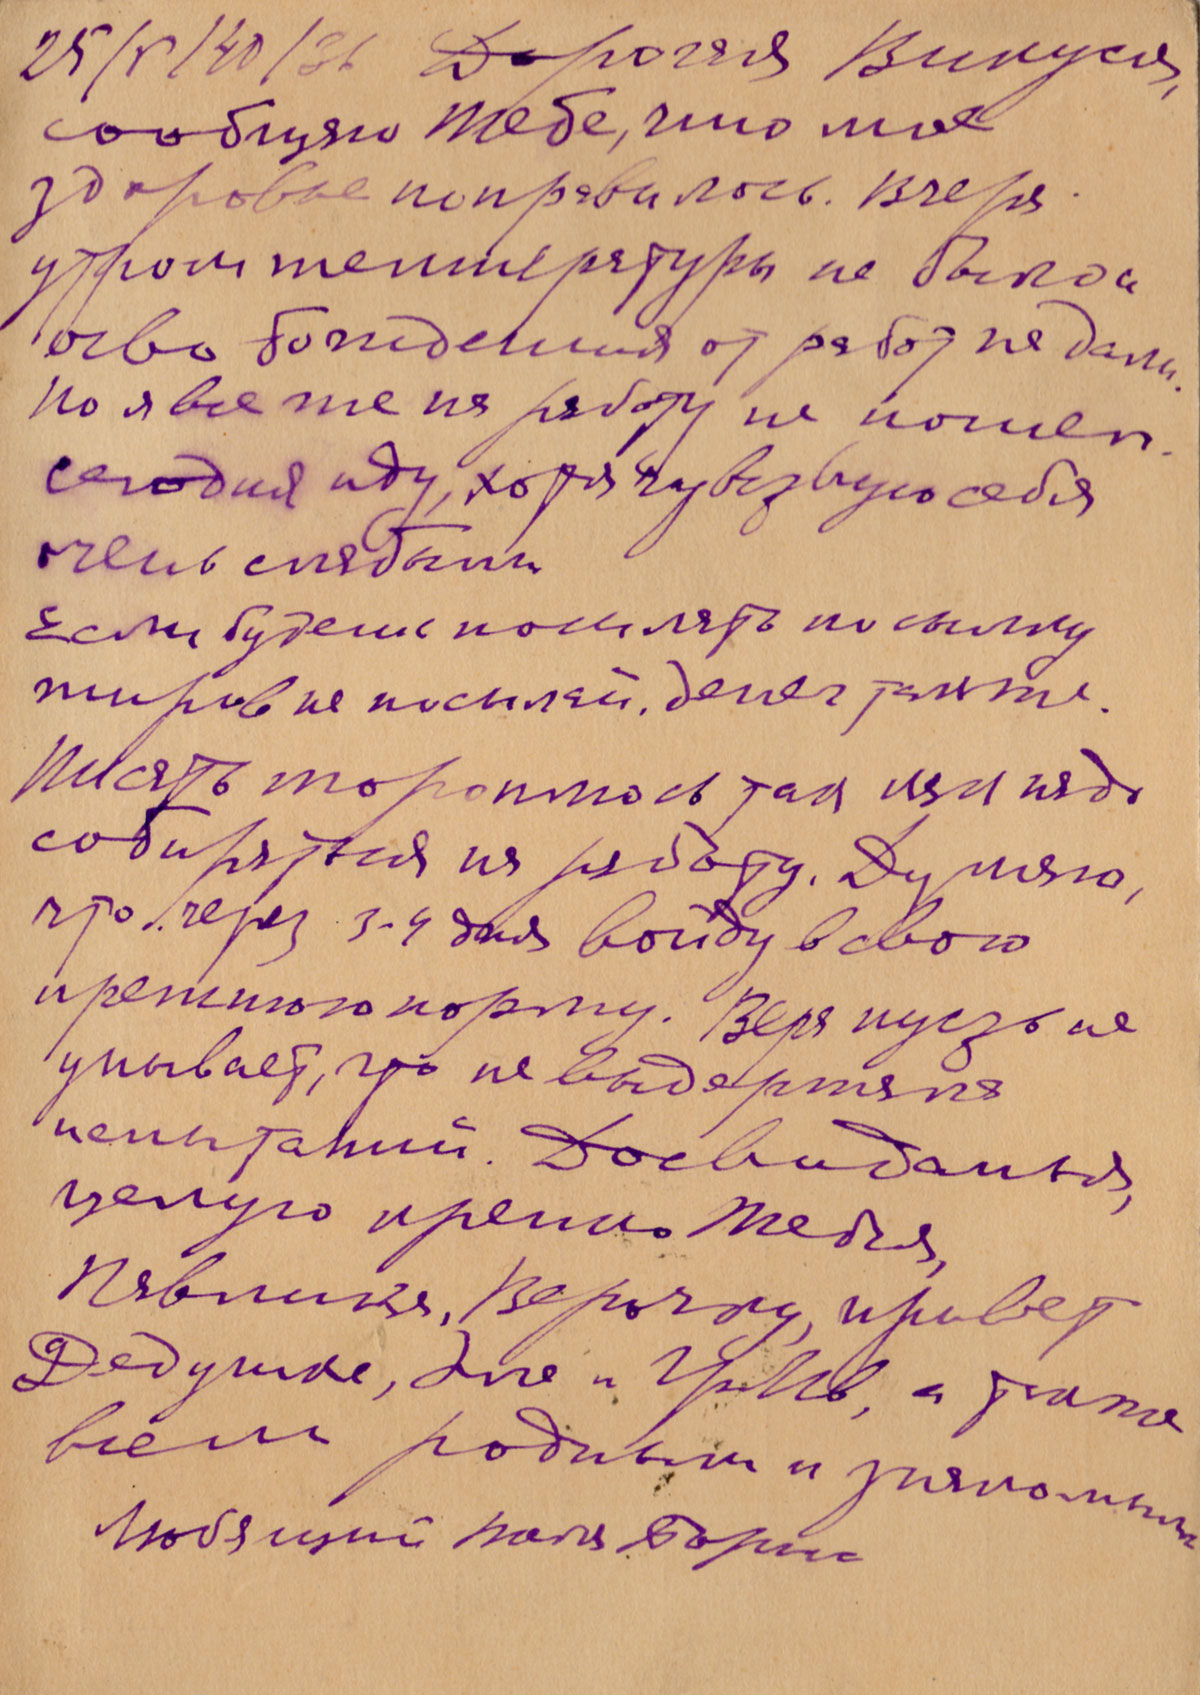 25/V/40/36 Дорогая Викуся,
сообщаю Тебе, что мое
здоровье поправилось. Вчера
утром температуры не было и
освобождения от работ не дали.
Но я все же на работу не пошел.
Сегодня иду, хотя чувствую себя
очень слабым
Если будешь посылать посылку
жиров не посылай, денег также.
Писать тороплюсь так как надо
собираться на работу. Думаю,
что через 3-4 дня войду в свою
прежнюю норму. Вера пусть не
унывает, что не выдержала
испытаний. Досвиданья,
целую крепко Тебя,
Павлика, Верочку, привет
Дедушке, и а также
всем родным и знакомым
Любящий папа Борис